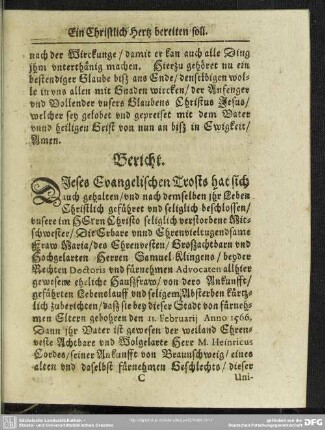 Ein Christlich Hertz bereiten soll.
nach der Wirckunge / damit er kan auch alle Ding
jhm vnterthänig machen. Hierzu gehöret nu ein
bestendiger Glaube biß ans Ende / denselbigen wol-
le in vns allen mit Gnaden wircken / der Anfenger
vnd Vollender vusers Glaubens Christus Jesus /
welcher sey gelobet vnd gepreiset mit dem Vater
vnnd heiligen Geist von nun an biß in Ewigkeit /
Amen.
Bericht.
DJeses Evangelischen Trosts hat sich
auch gehalten / vnd nach demselben jhr Leben
Christlich geführet vnd seliglich beschlossen /
vnsere im HErrn Christo seliglich verstorbene Mit-
schwester / Die Erbare vnnd Ehrenvieltugendsame
Fraw Maria / des Ehrenvesten / Großachtbarn vnd
Hochgelarten Herren Samuel Klingens / beyder
Rechten Doctoris vnd fürnehmen Advocaten allhier
gewesene eheliche Haußfraw / von dero Ankunfft /
geführten Lebenslauff vnd seligem Absterben kürtz-
lich zuberichten / daß sie bey dieser Stadt von fürneh-
men Eltern gebohren den 11. Februarij Anno 1566.
Dann jhr Vater ist gewesen der weiland Ehren-
veste Achtbare vnd Wolgelarte Herr M. Heinricus
Cordes / seiner Ankunfft von Braunschweig / eines
alten vnd daselbst fürnehmen Geschlechts / dieser
C Uni-